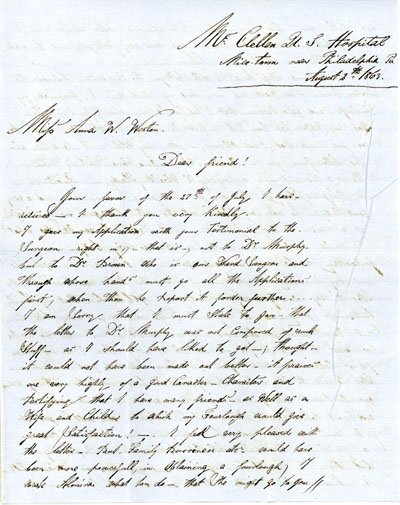 Mc Clellen U. S. Hospital
Nice-town near Philadelphia Pa
August 2th 1863.
Miss Anna W. Weston.
Dear friend!
Your favor of the 27th of July I have
recieved — I thank you very Kindly.
I gave my Application with your Testimonial to the
Surgeon right — that is, not to Dr. Murphy
but to Dr. Brown who is our Ward Surgeon and
through whose hands must go all the Applications
first, when then he report it forder further.
I am Sorry that I must State to you that
the letter to Dr. Murphy was not Composed of such
Stuff — as I should have liked to get — thought
it could not have been made out better — it praises
me very highly of a good Caracter — Character and
testifying that I have many friends as Well as a
Wife and Children to which my Fourlough would give
great Satisfaction! — I feel very pleased with
the letter — But Family would have
been more powerfull in Obtaining a fourlough, I
wrote Almira what to do — that She might go to You //